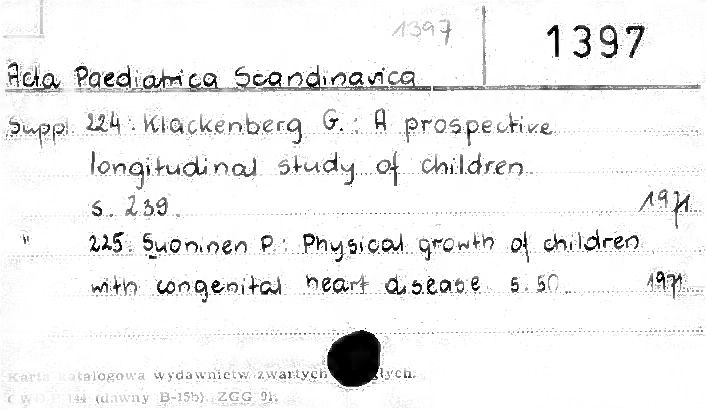 1397
1397
Acta Paediatrica Scandinavica
Suppl. 224. Klackenberg G.: A prospective
longitudinal study of children
s. 239. 1971
" 225. Suoninen P.: Physical growth of children
with congenital heart disease s. 50 1971
Karta katalogowa wydawnictw zwartych
144 (dawny B-15b). ZGG 91.